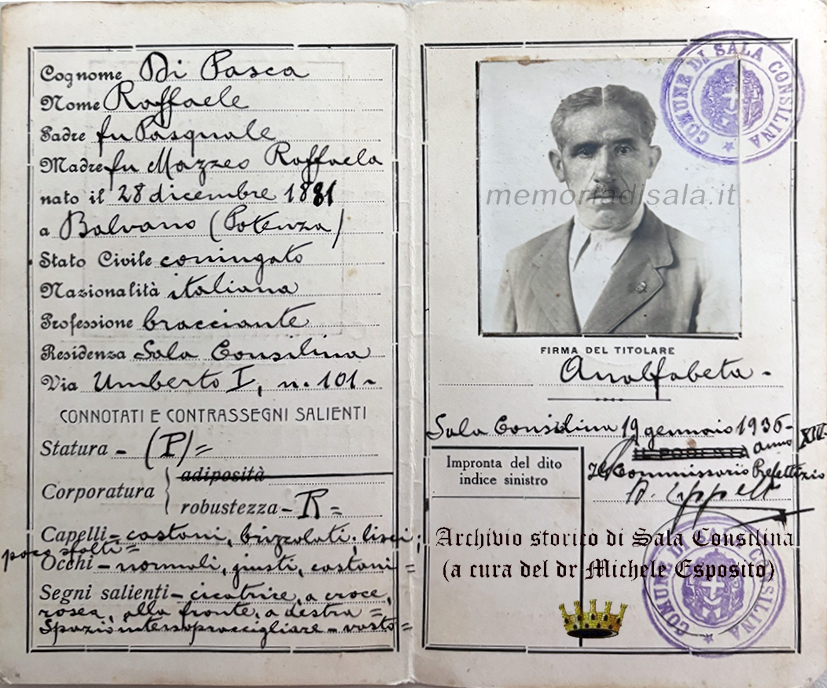 Cognome Di Pasca
Nome Raffaele
Padre fu Pasquale
Madre fu Mazzeo Raffaela
nato il 28 dicembre 1881
a Balvano (Potenza)
Stato Civile coniugato
Nazionalità italiana
Professione bracciante
Residenza Sala Consilina
Via Umberto I, n. 101-
CONNOTATI E CONTRASSEGNI SALIENTI
Statura - (P)=
Corporatura { adiposità
robustezza - R=
Capelli - castani, brizzolati, lisci,
poco folti=
Occhi - normali, giusti, castani=
Segni salienti - cicatrice, a croce,
rosea, alla fronte, a destra=
Spazio intersopraccigliare - vasto=
COMUNE DI SALA CONSILINA
memoriadisala.it
FIRMA DEL TITOLARE
Analfabeta-
Sala Consilina 19 gennaio 1936-
anno XIV-
IL PODESTÀ
Il Commissario Prefettizio
Impronta del dito
indice sinistro
Archivio storico di Sala Consilina
(a cura del dr Michele Esposito)
COMUNE DI SALA CONSILINA